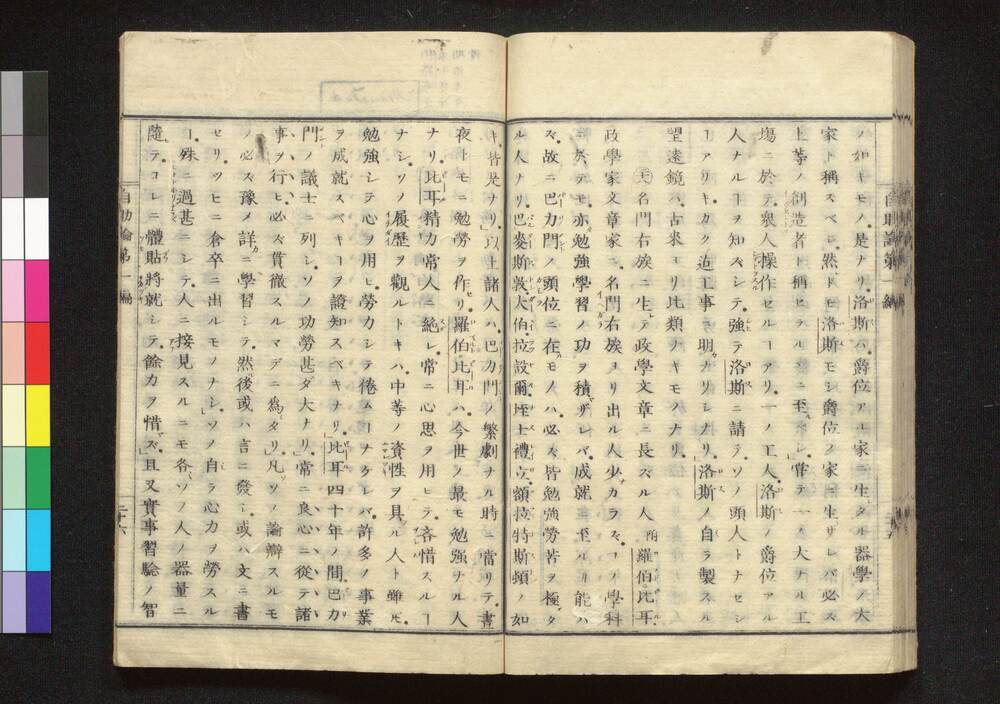 ノ如キモノ是ナリ。洛斯ハ爵位アル家ニ生タル器學ノ大
家ト稱スベシ。然レドモ洛斯モシ爵位ノ家ニ生リレバ必ズ
上等ノ創造者ト稱セラルヽニ至ルベシ。嘗テ一ノ大ナル工
塲ニ於テ衆人操作セルヿアリ。一ノ工人洛斯ノ爵位アル
人ナルヿヲ知ズシテ。強テ洛斯ニ請テソノ頭人トナセシ
ヿアリキ。カク造工事ニ明カナリシナリ。洛斯ノ自ラ製スル
望遠鏡ハ古來ヨリ比類ナキモノナリ。
名門右族ニ生レテ政學文章ニ長ズル人 附 羅伯比耳
政學家文章家ニ名門右族ヨリ出ル人少カラズ。コノ學科
ニ於テモ亦勉強學習ノ功ヲ積ザレバ成就ニ至ルヿ能ハ
ズ。故ニ巴力門ノ頭位ニ在モノハ必ズ皆勉強勞苦ヲ極タ
ル人ナリ。巴麥斯敦大伯拉設爾垤士禮立額拉特斯頓ノ如
キ皆是ナリ。以上諸人ハ巴力門ノ繁劇ナル時ニ當リテ晝
夜トモニ勉勞ヲ作リ。羅伯比耳ハ今世ノ最モ勉強ナル人
ナリ。比耳精力常人ニ絶レ常ニ心思ヲ用ヒテ吝惜スルヿ
ナシ。ソノ履歴ヲ觀ルトキハ中等ノ資性ヲ具ル人ト雖ドモ
勉強シテ心ヲ用ヒ勞力シテ倦ムヿナクレバ許多ノ事業
ヲ成就スベキヿヲ證知スベキナリ。比耳四十年ノ間巴力
門ノ議士ニ列シソノ功勞甚ダ大ナリ。常ニ良心ニ從テ諸
事ヲ行ヒ必ズ貫徹スルマデニ爲タリ。凡ソノ論辯スルモ
ノ必ズ豫メ詳カニ學習シテ。然後或ハ言ニ發シ或ハ文ニ書
セリ。ツヒニ倉卒ニ出ルモノナシ。ソノ自ラ心力ヲ勞スル
ヿ殊ニ過甚ニシテ。人ニ接見スルニモ各々ソノ人ノ器量ニ
隨テコレニ體貼將就シテ。餘力ヲ惜ズ。且又實事習驗ノ智
自助論第一編
二十六